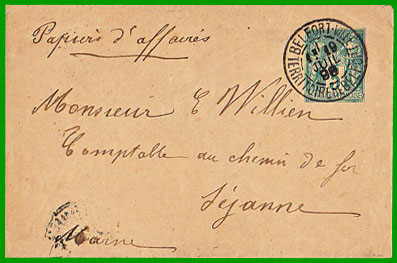 Papiers d'affaires
BELFORT-VILLE
19
JUIL
98
TERRRE DE BELFORT
Monsieur E Willien
Comptable au chemin de fer
Séjanne
Marne